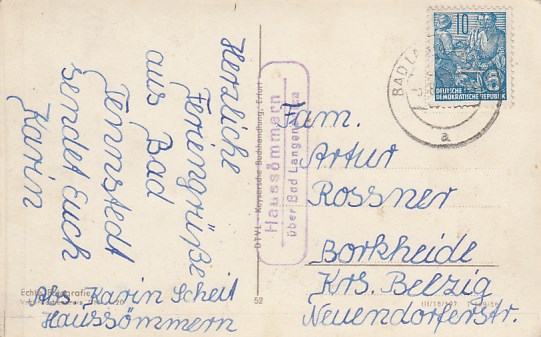 Herzliche
Feriengrüße
aus Bad
Tennstedt
sendet Euch
Karin
Abs. Karin Scheit
Haussömmern
Echte
52
DTVL - Keysersche Buchhandlung, Erfurt
Haussömmern
über Bad Langensalza
BAD LA
a
10
DEUTSCHE
DEMOKRATISCHE REPUBLIK
Fam.
Artur
Rossner
Borkheide
Krs. Belzig
Neuendorferstr.